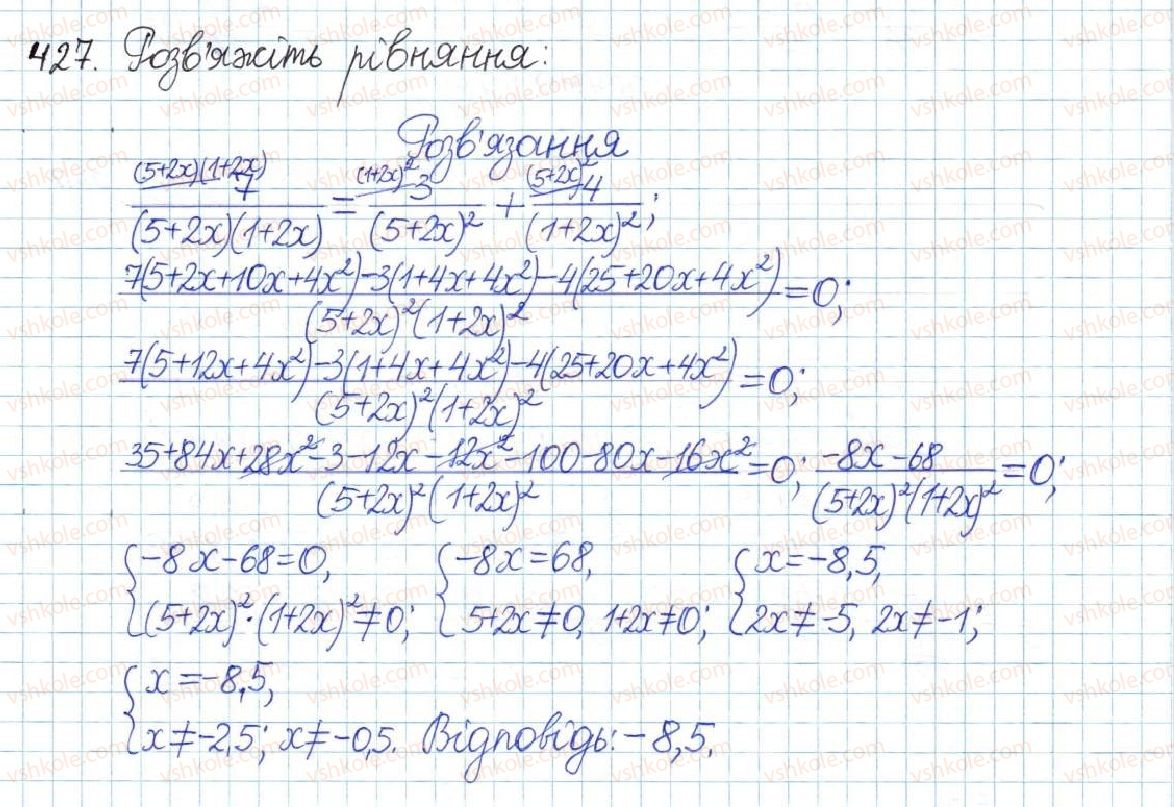 427. Розв'яжіть рівняння:
Розв'язання
(5+2x)(1+2x) (1+2x)² (5+2x)²
7/((5+2x)(1+2x)) = 3/(5+2x)² + 4/(1+2x)²;
(7(5+2x+10x+4x²)-3(1+4x+4x²)-4(25+20x+4x²))/((5+2x)²(1+2x)²)=0;
(7(5+12x+4x²)-3(1+4x+4x²)-4(25+20x+4x²))/((5+2x)²(1+2x)²)=0;
(35+84x+28x²-3-12x-12x²-100-80x-16x²)/((5+2x)²(1+2x)²)=0; (-8x-68)/((5+2x)²(1+2x)²)=0;
{-8x-68=0, {-8x=68, {x=-8,5,
(5+2x)²·(1+2x)²≠0; 5+2x≠0, 1+2x≠0; 2x≠-5, 2x≠-1;
{x=-8,5,
x≠-2,5; x≠-0,5. Відповідь: -8,5.